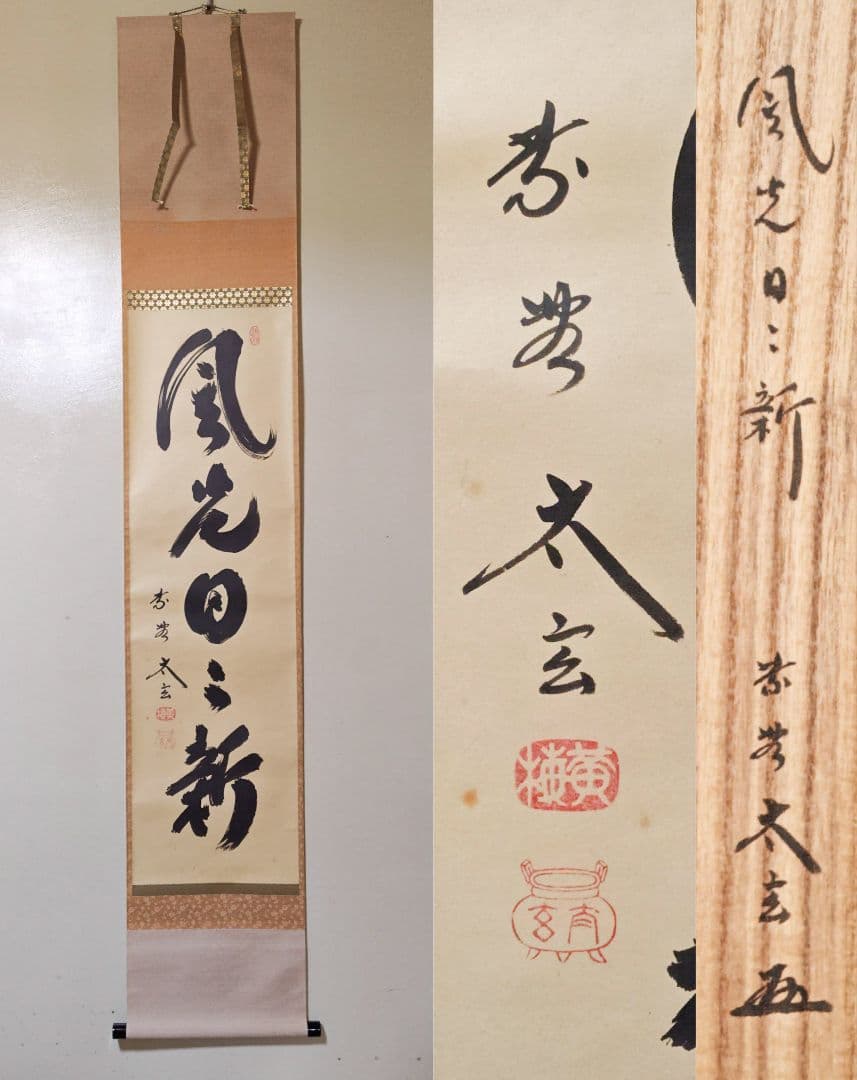 風光日々新
紫野 太玄
紫野 太玄
黄梅
太玄
風光日々新
紫野 太玄